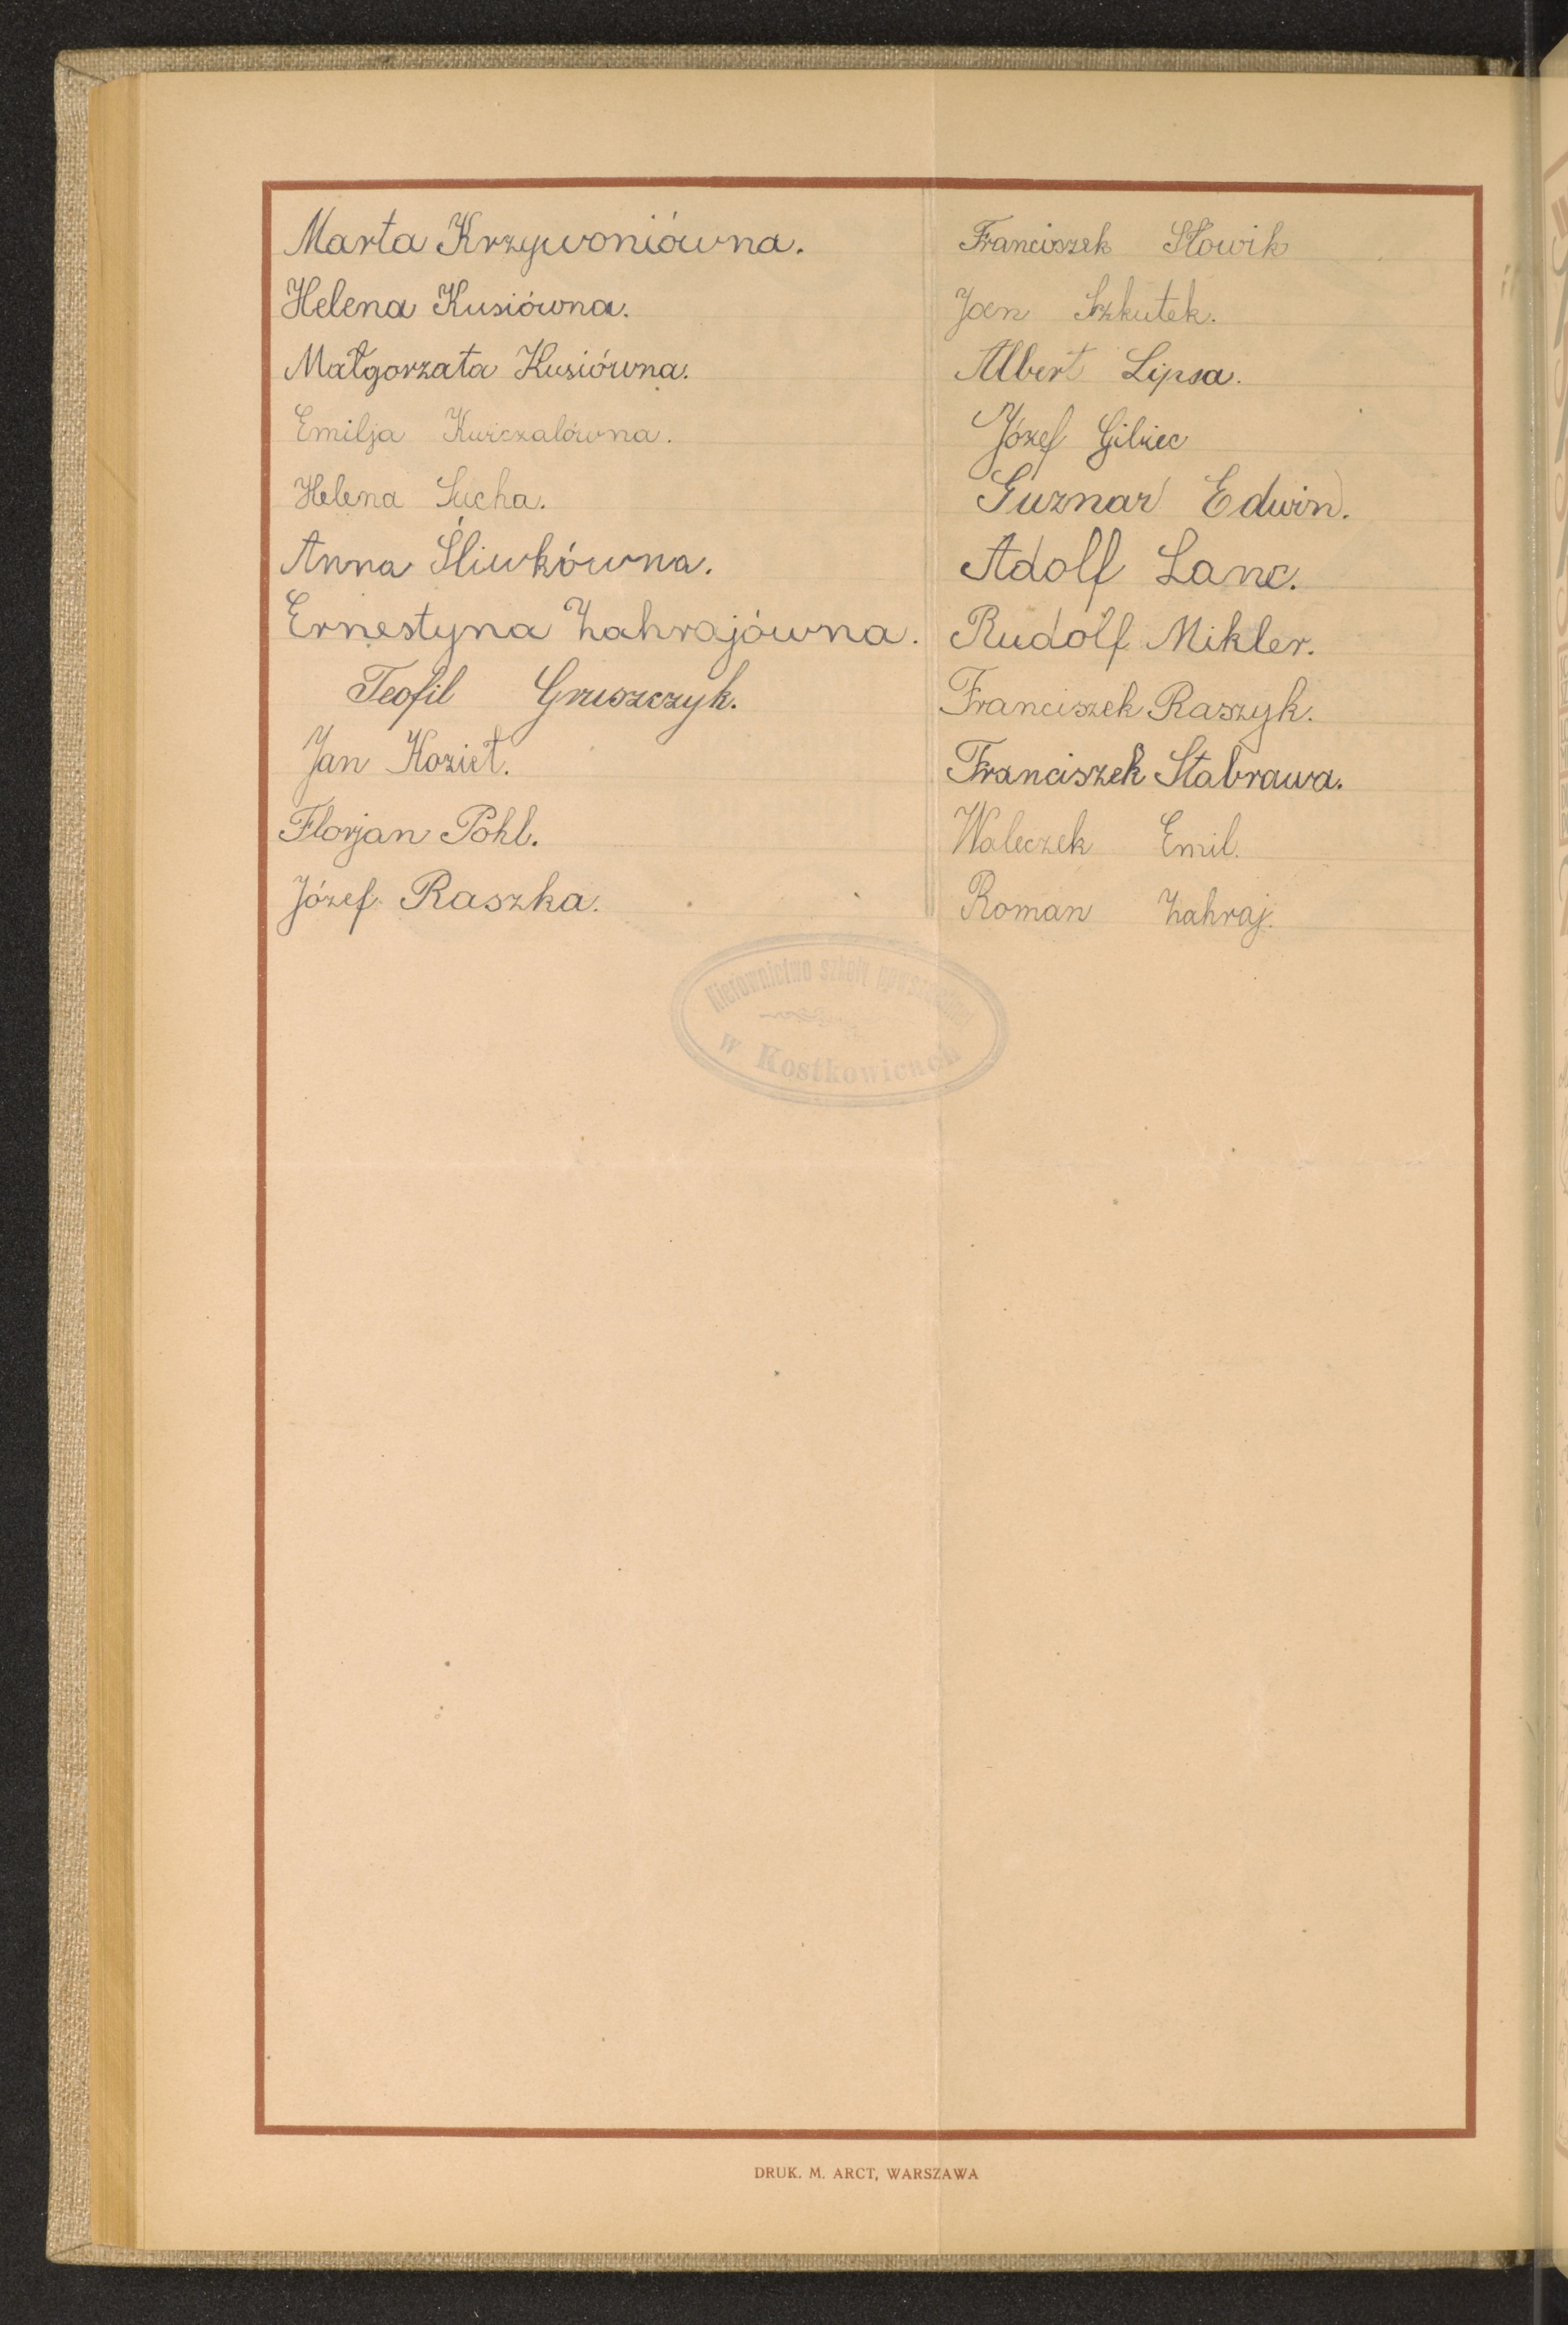 Marta Krzywoniówna.
Helena Kusiówna.
Małgorzata Kusiówna.
Emilja Kurczalówna.
Helena Sucha.
Anna Śliwkówna.
Ernestyna Zahrajówna.
Teofil Gruszczyk.
Jan Kozieł.
Florjan Pohl.
Józef Raszka.
Franciszek Słowik
Jan Szkutek.
Albert Lipsa.
Józef Gibiec
Guznar Edwin.
Adolf Lanc.
Rudolf Mikler.
Franciszek Raszyk.
Franciszek Stabrawa.
Waleczek Emil.
Roman Zahraj.
Kierownictwo szkoły powszechnej
w Kostkowicach
DRUK. M. ARCT, WARSZAWA